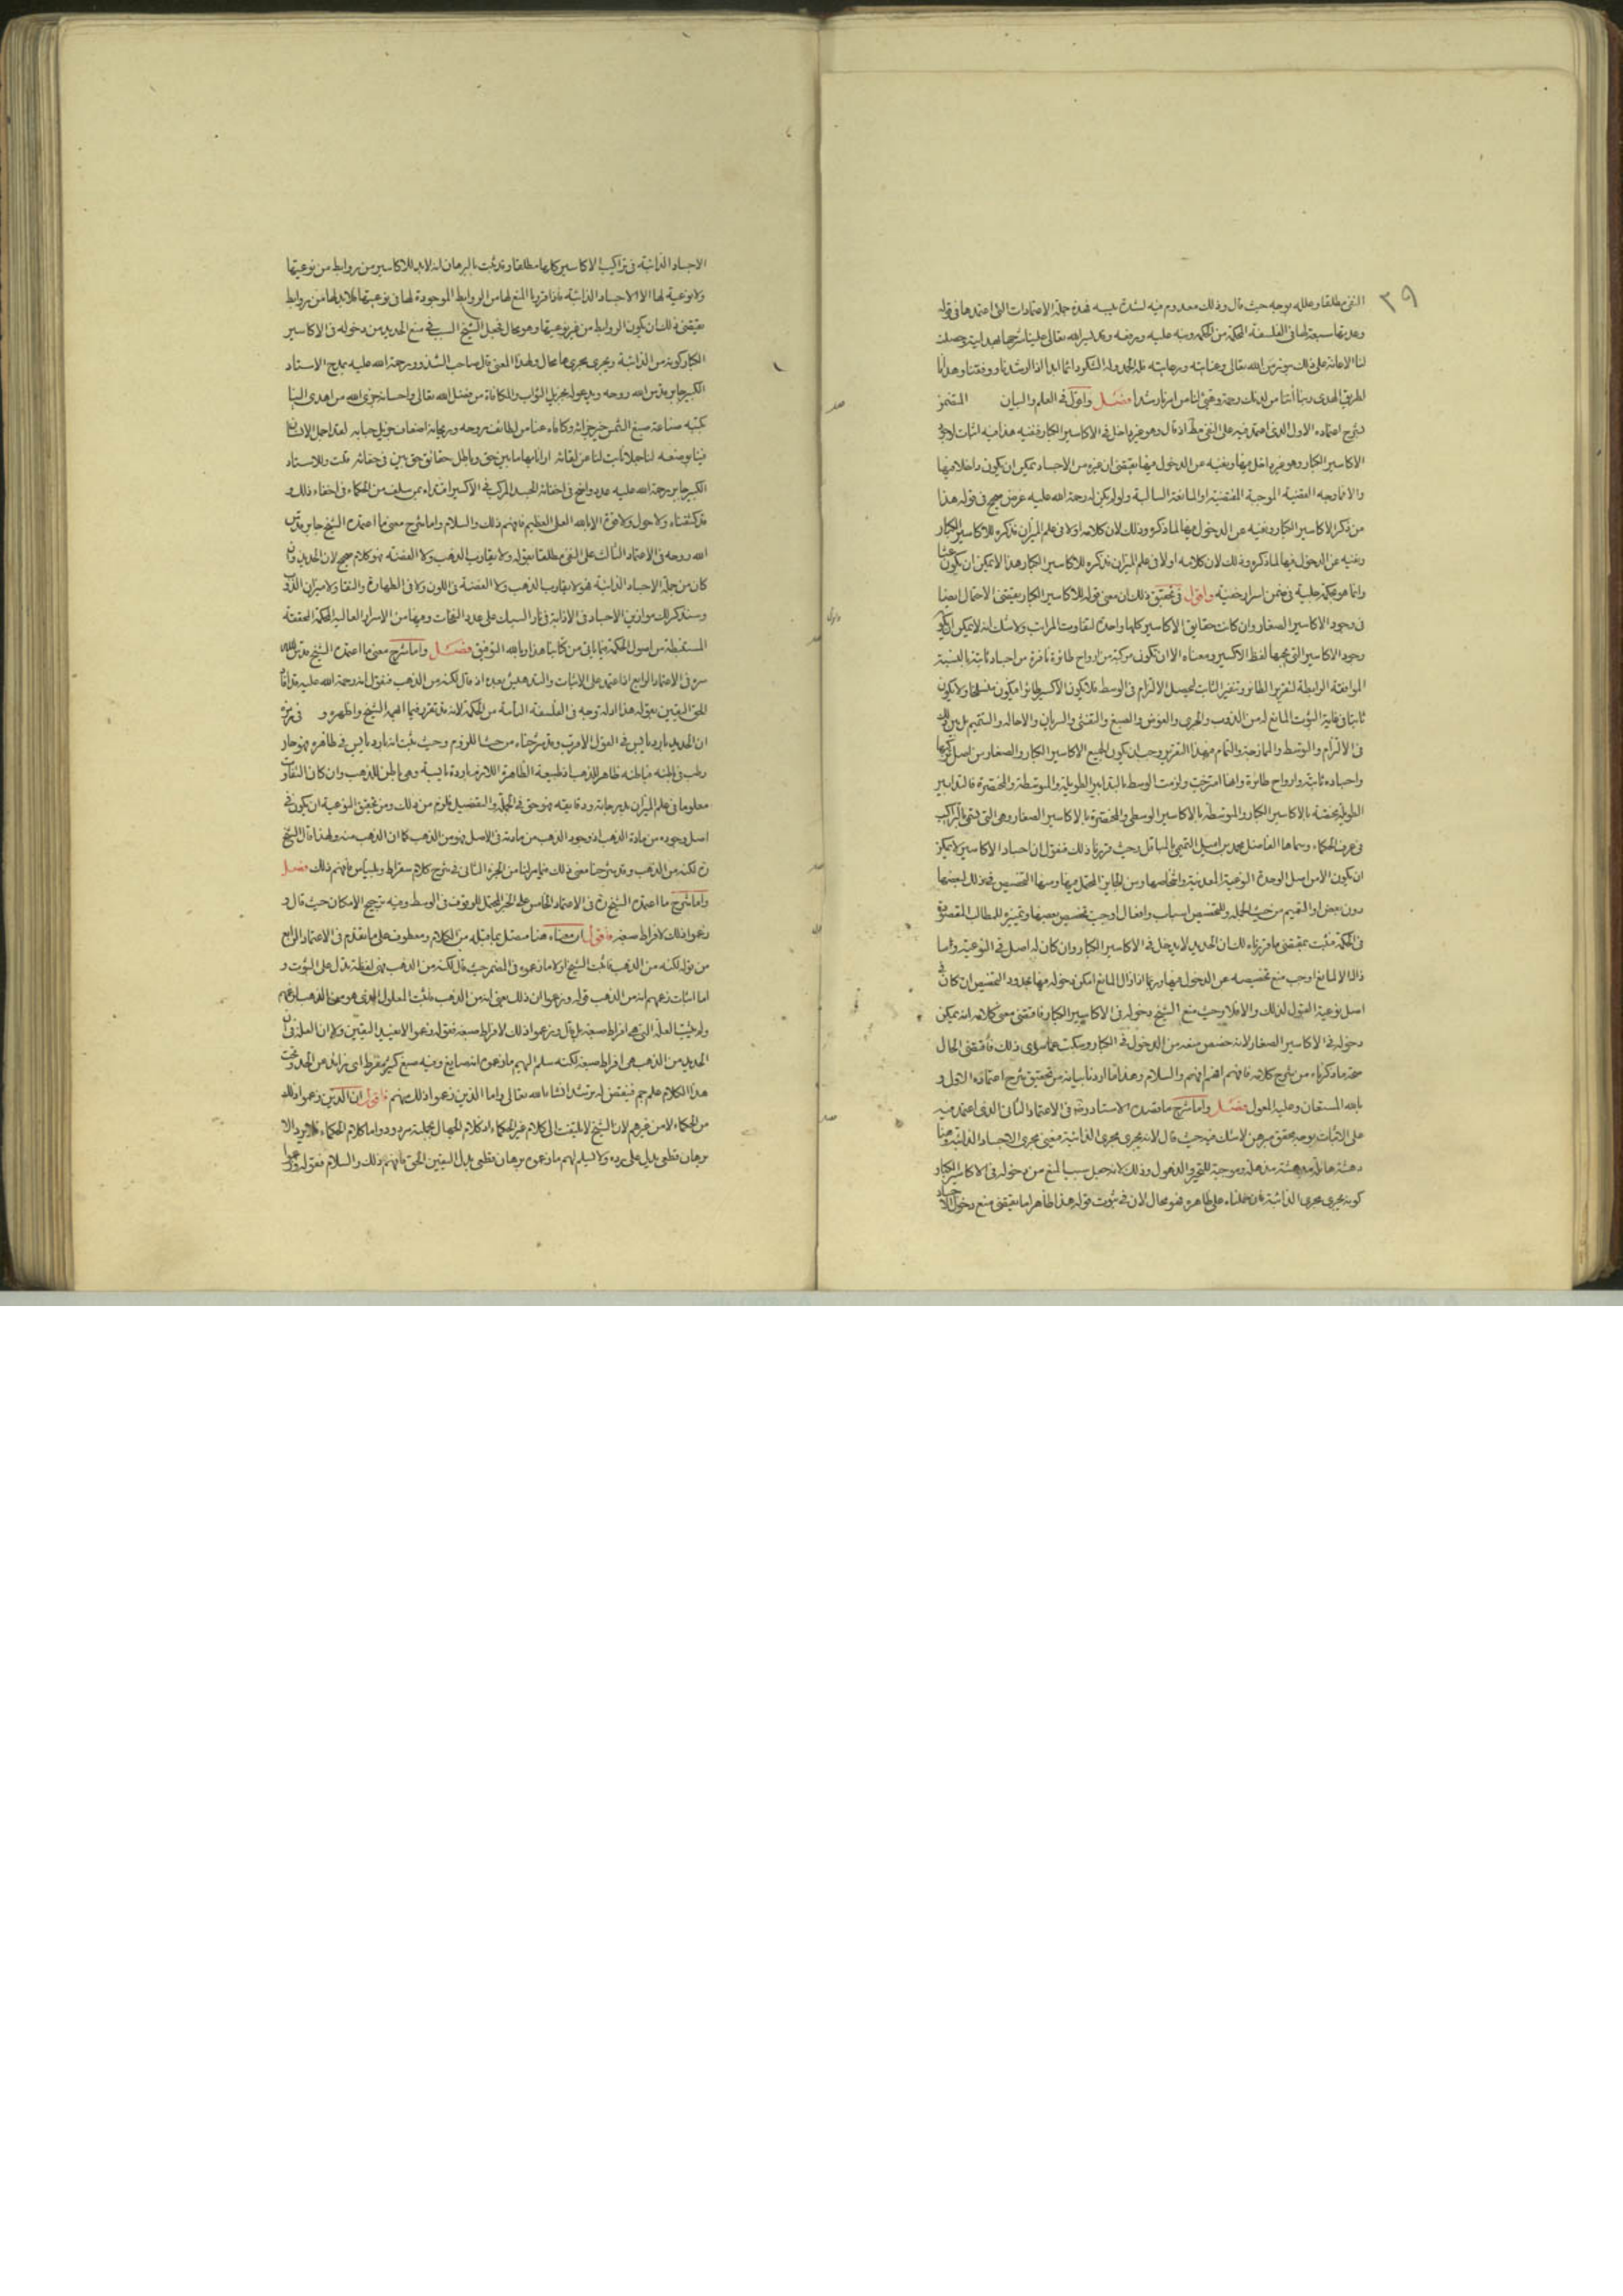 ٣٩
النفي مطلقا وعلله بوجه حيث قال وذلك معدوم فيه لشدة يبسه فهذه جملة الاعتمادات التي اعتمدها في قوله
وعدتها سبعة لها في الفلسفة المحكمة من الحكمة
لنا الاعانة على ذلك من الله تعالى وعنايته ورعايته فله الحمد وله الشكر دائما ابدا اذ ارشدنا ووفقنا وهدانا
الطريق الهدى ربنا آتنا من لدنك رحمة وهيئ لنا من امرنا رشدا فصل واقول في العلم والبيان المتضمن
شرح اعتماده الاول الذي اعتمد فيه على النفي اذ قال وهو غير داخل في الاكاسير الكبار ففيه هذا فيه اثبات
الاكاسير الكبار وهو غير داخل فيها ونفيه عن الدخول فيها يقتضي ان غيره من الاجساد يمكن ان يكون داخلا فيها
والا فما وجه القضية الموجبة المقتضية او المانعة السالبة ولو لم يكن له رحمة الله عليه غرض صحيح في قوله هذا
من ذكر الاكاسير الكبار ونفيه عن الدخول فيها لما ذكره وذلك لان كلامه اولا في علم الميزان فذكره للاكاسير الكبار
ونفيه عن الدخول فيها لما ذكره وذلك لان كلامه اولا في علم الميزان فذكره للاكاسير الكبار هذا لا يمكن ان يكون عبثا
وانما هو لحكمة جلية في ضمن اسرار خفية واقول في تحقيق ذلك ان معنى قوله للاكاسير الكبار يقتضي الاحتمال ايضا
في وجود الاكاسير الصغار وان كانت حقايق الاكاسير كلها واحدة لتفاوت المراتب ولا شك انه لا يمكن ان يكون
وجود الاكاسير التي يجمعها لفظ الاكسير ومعناه الا ان تكون مركبة من ارواح طائرة نافرة من اجساد ثابتة بالنسبة
الموافقة الرابطة لتقرير الطائر وتنفير الثابت ليحصل الالتزام في الوسط فلا يكون الاكسير طائرا فيكون ولا يكون
ثابتا في غاية الثبوت المانع له من الذوب والجري والغوص والصبغ والتفشي والسريان والاحالة والتتميم بل بين ذلك
في الالتزام والوسط والممازجة والتمام فبهذا التقرير وجب ان يكون لجميع الاكاسير الكبار والصغار من اصل تركيبها
واجساده ثابتة وارواح طائرة وانها امتزجت ولزمت الوسط بالتدابير الطويلة والمتوسطة والمختصرة فالتدابير
الطويلة مختصة بالاكاسير الكبار والمتوسطة بالاكاسير الوسطى والمختصرة بالاكاسير الصغار وهي التي تسمى بالتراكيب
في عرف الحكماء وسماها الفاضل محمد بن اميل التميمي وحيث قررنا ذلك فنقول ان اجساد الاكاسير لا يمكن
ان يكون الا من اصل الوحدة النوعية المعدنية واشخاصها ومن الجايز المحتمل فيها ومنها التخصيص في ذلك لبعضها
دون بعض او التعميم من حيث الجملة وللتخصيص اسباب وافعال اوجبت تخصيص بعضها وتمييزه للمطالب المقصودة
في الحكمة فثبت بمقتضى ما قررناه لك ان الحديد لا يدخل في الاكاسير الكبار وان كان له اصل في النوعية واما
ذلك الا لمانع اوجب منع تخصيصه عن الدخول فيها وربما اذا زال المانع امكن دخوله فيها بحدود التخصيص ان كان في
اصل نوعية القبول لذلك والا فلا وحيث منع الشيخ دخوله في الاكاسير الكبار فاقتضى معنى كلامه انه يمكن
دخوله في الاكاسير الصغار لانه خصص منعه من الدخول في الكبار وسكت عما سوى ذلك فاقتضى الحال
صحة ما ذكرناه من شرح كلامه فافهم والسلام وهذا ما اردنا بيانه من تحقيق شرح اعتماده الاول و
بالله المستعان وعليه المعول فصل واما شرح ما قصده الاستاد ودونه في الاعتماد الثاني الذي اعتمد فيه
على الاثبات بوجه محقق مبرهن لا شك فيه حيث قال لانه يجري مجرى الذائبة فمعنى مجرى الاجساد الذائبة وهنا
دهشة هائلة مدهشة مذهلة وموجبة للتحير والذهول وذلك لانه جعل سببا لمنع من دخوله في الاكاسير الكبار
كونه يجري مجرى الذائبة فان حملناه على ظاهره فهو محال لان في ثبوت قوله هذا ظاهرا ما يقتضي منع دخول الاجساد
الاجساد الذائبة في تراكيب الاكاسير كلها مطلقا وقد ثبت بالبرهان انه لا بد للاكاسير من روابط من نوعيتها
ولا نوعية لها الا الاجساد الذائبة فاذا قررنا المنع لها من الروابط الموجودة لها في نوعيتها فلا بد لها من روابط
يقتضي ذلك ان يكون الروابط من غير نوعيتها وهو محال فجعل الشيخ السبب في منع الحديد من دخوله في الاكاسير
الكبار كونه من الذائبة ويجري مجراها محال ولهذا المعنى قال صاحب الشذور رحمة الله عليه يمدح الاستاد
الكبير جابر قدس الله روحه ويدعو له بجزيل الثواب والمكافاة من فضل الله تعالى واحسانه جزى الله من اهدى الينا
بكتبه صناعة صبغ الشمس خير جزائه وكافاه عنا من لطائف روحه وريحانه اضعاف جزيل حبائه لقد اجمل الاحسان
فينا بوضعه لنا جملا نابت لنا عن لقائه ارانا بها ما بين حق وباطل حقائق حق بين في خفائه قلت وللاستاد
الكبير جابر رحمة الله عليه عذر واضح في اخفائه الجسد المركب في الاكسير اقتداء بمن سلف من الحكماء في اخفاء ذلك و
قد كشفناه ولا حول ولا قوة الا بالله العلي العظيم فافهم ذلك والسلام واما شرح معنى ما اعتمده الشيخ جابر قدس
الله روحه في الاعتماد الثالث على النفي مطلقا بقوله ولا يقارب الذهب ولا الفضة فهو كلام صحيح لان الحديد وان
كان من جملة الاجساد الذائبة فهو لا يقارب الذهب ولا الفضة في اللون ولا في الطهارة والنقا ولا ميزان الذوب
وسنذكر لك موازين الاجساد في الاذابة في نار السبك على عدد النفخات وفيها من الاسرار العالية الحكمة المحققة
المستنبطة من اصول الحكمة فيما ياتي من كتابنا هذا وبالله التوفيق فصل واما شرح معنى ما اعتمده الشيخ قدس الله
سره في الاعتماد الرابع اذا اعتمد على الاثبات والتدهيش بعده اذ قال لكنه من الذهب فنقول انه رحمة الله عليه قد افاد
الحق اليقين بقوله هذا اذ له توجه في الفلسفة التامة من الحكمة لانه قد تقرر فيما افهمه الشيخ واظهره و في
ان الحديد بارد يابس في القول الاقرب وقد شرحناه من حيث اللزوم وحيث ثبت انه بارد يابس في ظاهره فهو حار
رطب في باطنه فباطنه ظاهر الذهب فطبيعة الظاهرة اللازمة باردة يابسة وهي باطن للذهب وان كان التفاوت
معلوما في علم الميزان بدرجاته ودقايقه فهو حق في الجملة والتفصيل فلزم من ذلك ومن تحقيق النوعية ان يكون في
اصل وجوده من مادة الذهب اذ وجود الذهب من مادته في الاصل فهو من الذهب كما ان الذهب منه ولهذا قال الشيخ
لكنه من الذهب وقد شرحنا معنى ذلك فيما مر لنا من الجزء الثاني في شرح كلام سقراط وبليناس فافهم ذلك فصل
واما شرح ما اعتمده الشيخ في الاعتماد الخامس على الخبر المحتمل للوقوف في الوسط وفيه ترجيح الامكان حيث قال و
زعموا ذلك لافراط صبغه فاقول ان معناه هنا متصل بما قبله من الكلام ومعطوف على ما تقدم في الاعتماد الرابع
من قوله لكنه من الذهب فاثبت الشيخ اولا ما زعموه في الضمير حيث قال لكنه من الذهب فهي لفظة تدل على الثبوت و
اما اثبات زعمهم انه من الذهب قوله وزعموا ان ذلك يعني انه من الذهب فاثبت المعلول الذي هو من الذهب بزعمهم
ولم يثبت العلة التي هي افراط صبغه بل قال وزعموا ذلك لافراط صبغه فقوله زعموا لا يفيد اليقين ولا ان العلة في ان
الحديد من الذهب هي افراط صبغه لكنه سلم اليهم ما زعموه انه صابغ وفيه صبغ كثير مفرط اي زائد عن الحد وتحت
هذا الكلام علم جم فيفتقر له من مرشد انشا الله تعالى واما الذين زعموا ذلك منهم فاقول ان الذين زعموا ذلك
من الحكماء لا من غيرهم لان الشيخ لا يلتفت الى كلام غير الحكماء اذ كلام الجهال بجملته مردود واما كلام الحكماء فلا يرد الا
ببرهان قطعي يدل على رده ولا نسلم لهم ما زعموه ببرهان قطعي يدل اليقين الحق فافهم ذلك والسلام فقوله وزعموا